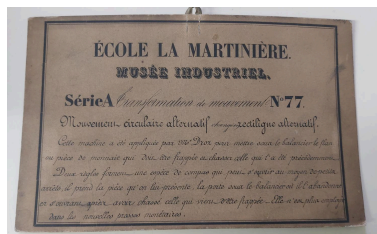 ÉCOLE LA MARTINIÈRE.
MUSÉE INDUSTRIEL.
Série A Transformation de mouvement No 77.
Mouvement circulaire alternatif changé en rectiligne alternatif.
Cette machine a été appliquée par Mr Droz pour mettre sous le balancier le flan
ou pièce de monnaie qui doit être frappée et chasser celle qui l'a été précédemment.
Deux règles forment une espèce de compas qui peut s'ouvrir au moyen de
prend la pièce qu'on lui présente, la porte sous le balancier et l'abandonne
en s'ouvrant après avoir chassé celle qui vient d'être frappée. Elle n'est plus employée
dans les nouvelles presses monétaires.